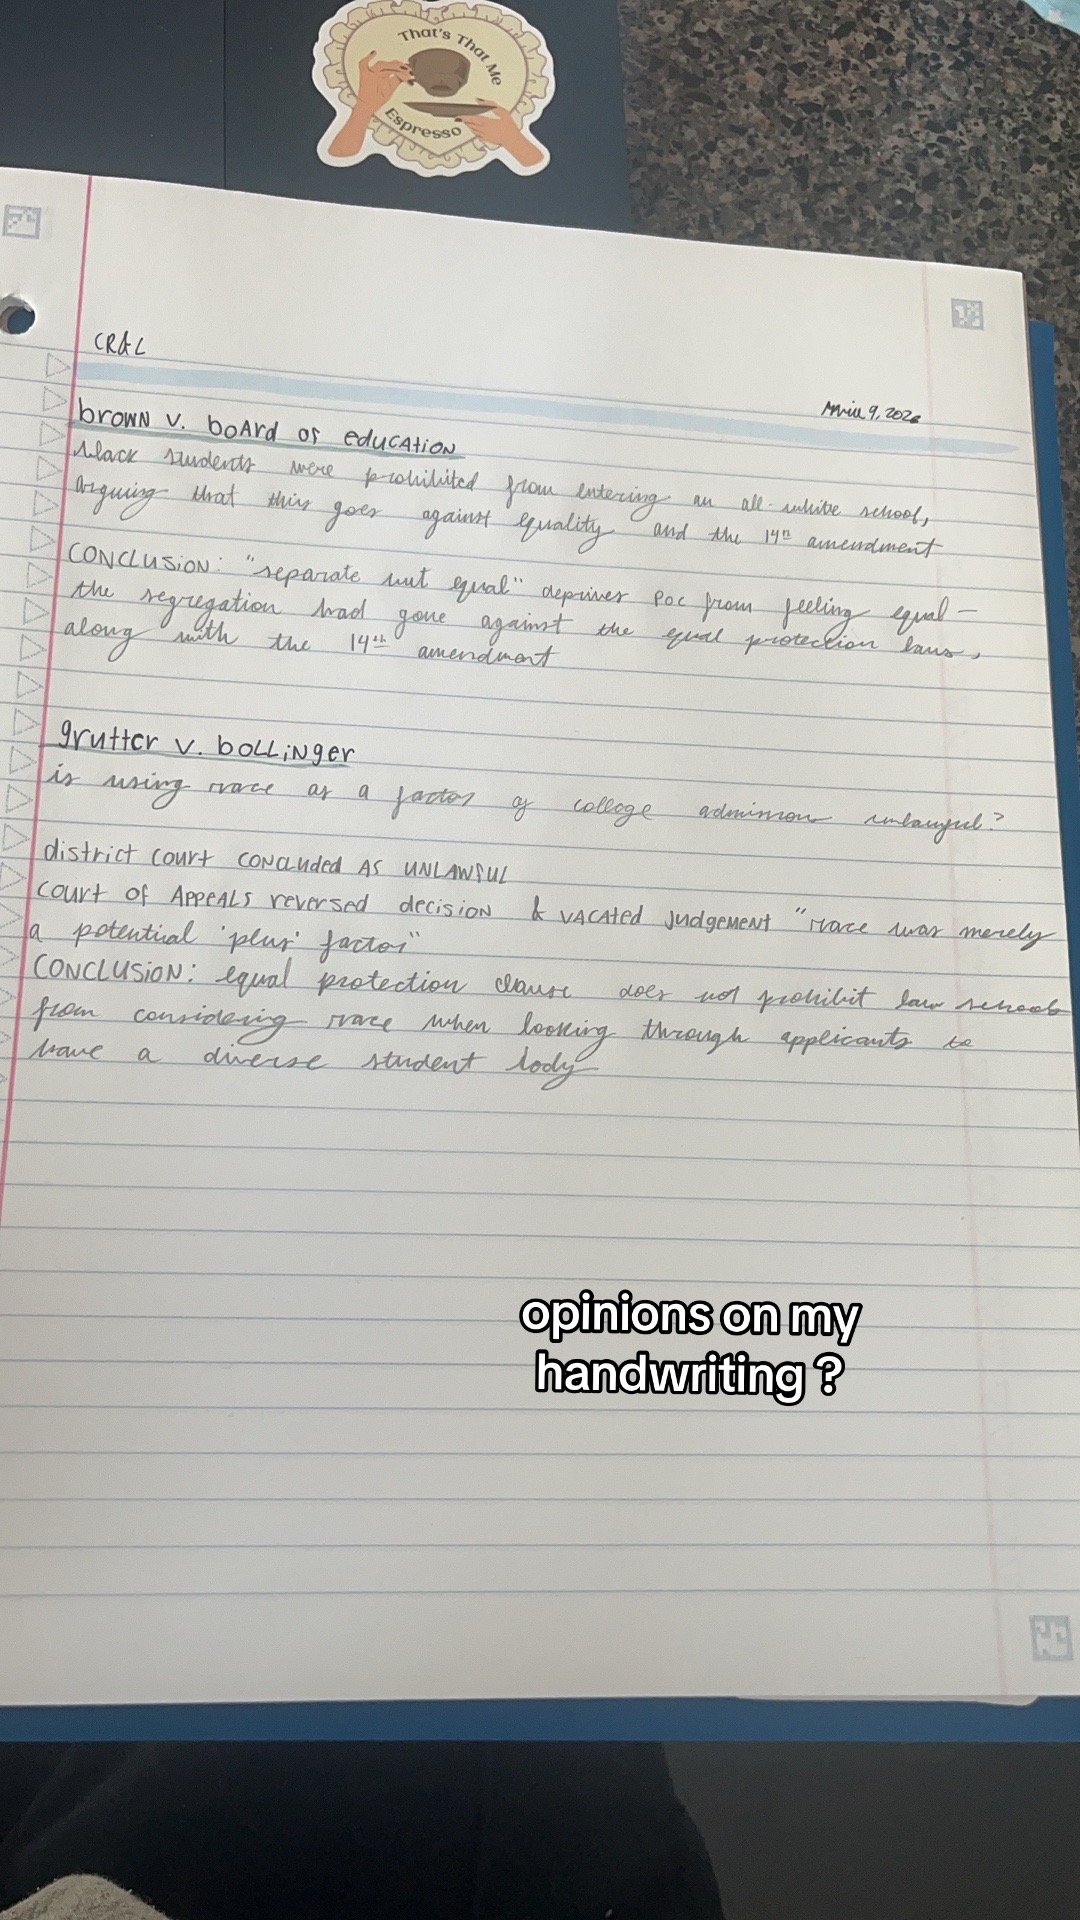 That's That Me
Espresso
CR&L
April 9, 2026
brown v. board of education
black students were prohibited from entering an all-white school,
arguing that this goes against equality and the 14th amendment
CONCLUSION: "separate but equal" deprives POC from feeling equal —
the segregation had gone against the equal protection laws,
along with the 14th amendment
grutter v. bollinger
is using race as a factor of college admissions unlawful?
district court concluded as unlawful
court of appeals reversed decision & vacated judgement "race was merely
a potential 'plus' factor"
CONCLUSION: equal protection clause does not prohibit law schools
from considering race when looking through applicants to
have a diverse student body
opinions on my
handwriting ?